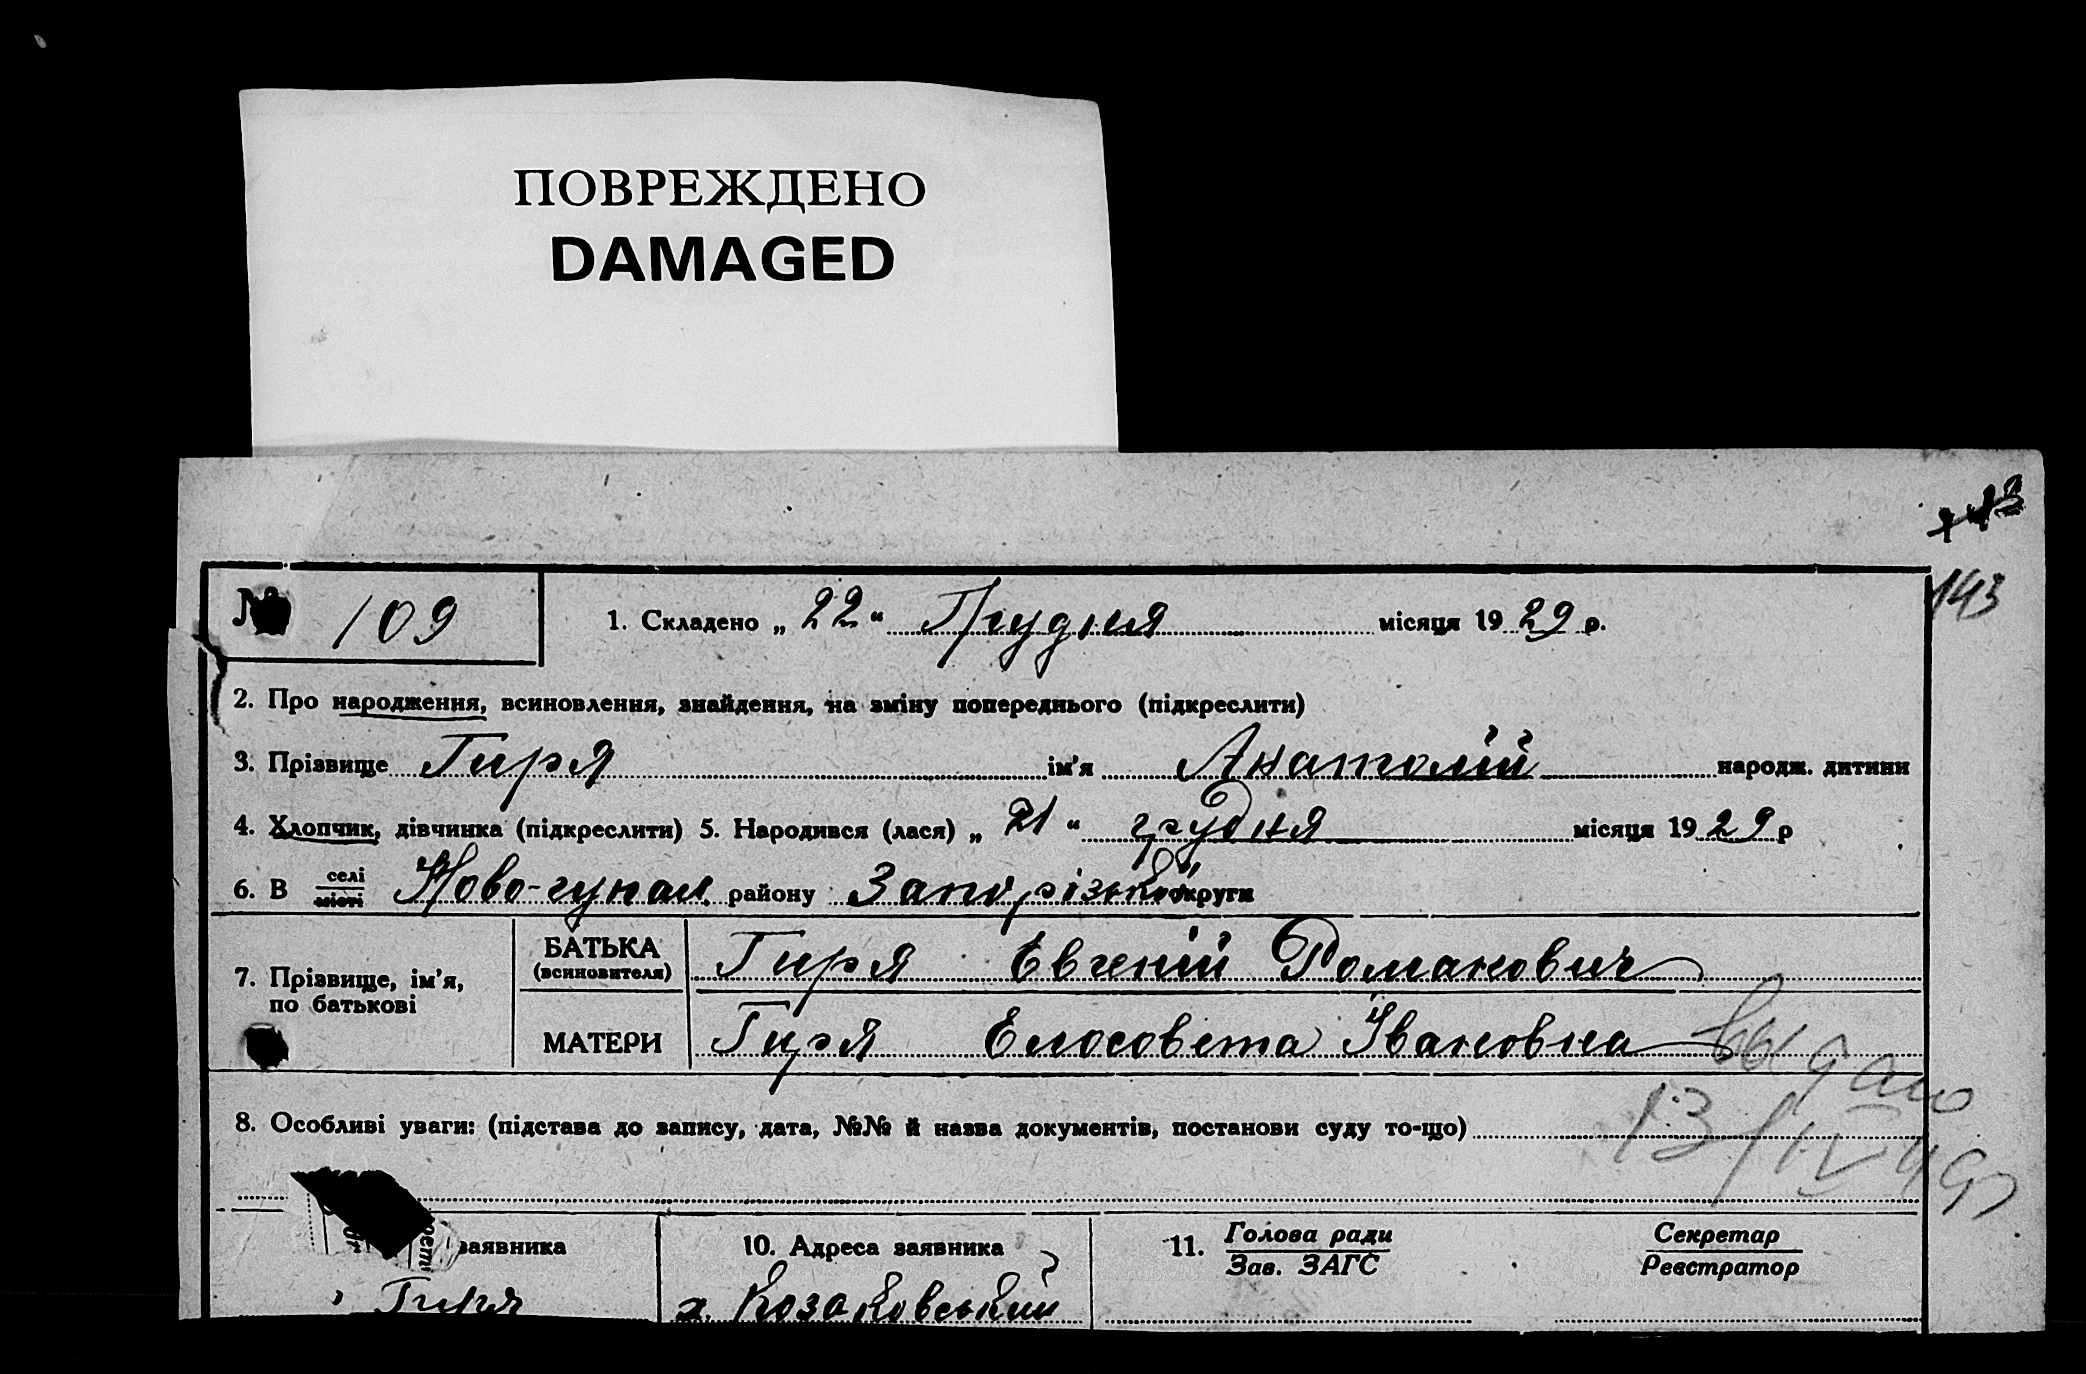 ПОВРЕЖДЕНО
DAMAGED
143
№ 109
1. Складено „ 22 “ Грудня місяця 1929 р.
2. Про народження, всиновлення, знайдення, на зміну попереднього (підкреслити)
3. Прізвище Гиря ім’я Анатолій народж. дитини
4. Хлопчик, дівчинка (підкреслити) 5. Народився (лася) „ 21 “ грудня місяця 1929 р
6. В селі
місті
району Запорізької округи
7. Прізвище, ім’я,
по батькові
БАТЬКА
(всиновителя)
Гиря Евгеній Романович
МАТЕРИ
Гиря Елосовета Івановна
выдано
13/IV 49
8. Особливі уваги: (підстава до запису, дата, №№ й назва документів, постанови суду то-що)
заявника
Гиря
10. Адреса заявника
х. Козаковський
11. Голова ради
Зав. ЗАГС
Секретар
Реєстратор